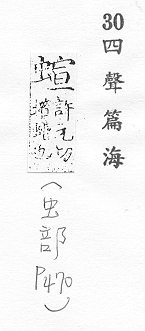 30四聲篇海
蝖許元切
也
(虫部P470)